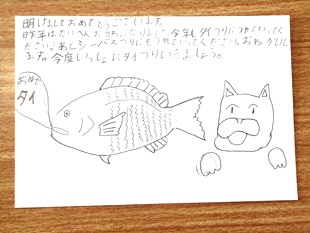 明けましておめでとうございます。
昨年はたいへんおせわになりました。今年もタイつりにつれていってく
ださい。あとシーバスつりにもつれていってください。おねがいし
ます。今度いっしょにタイつりいきましょう。
おめで
タイ